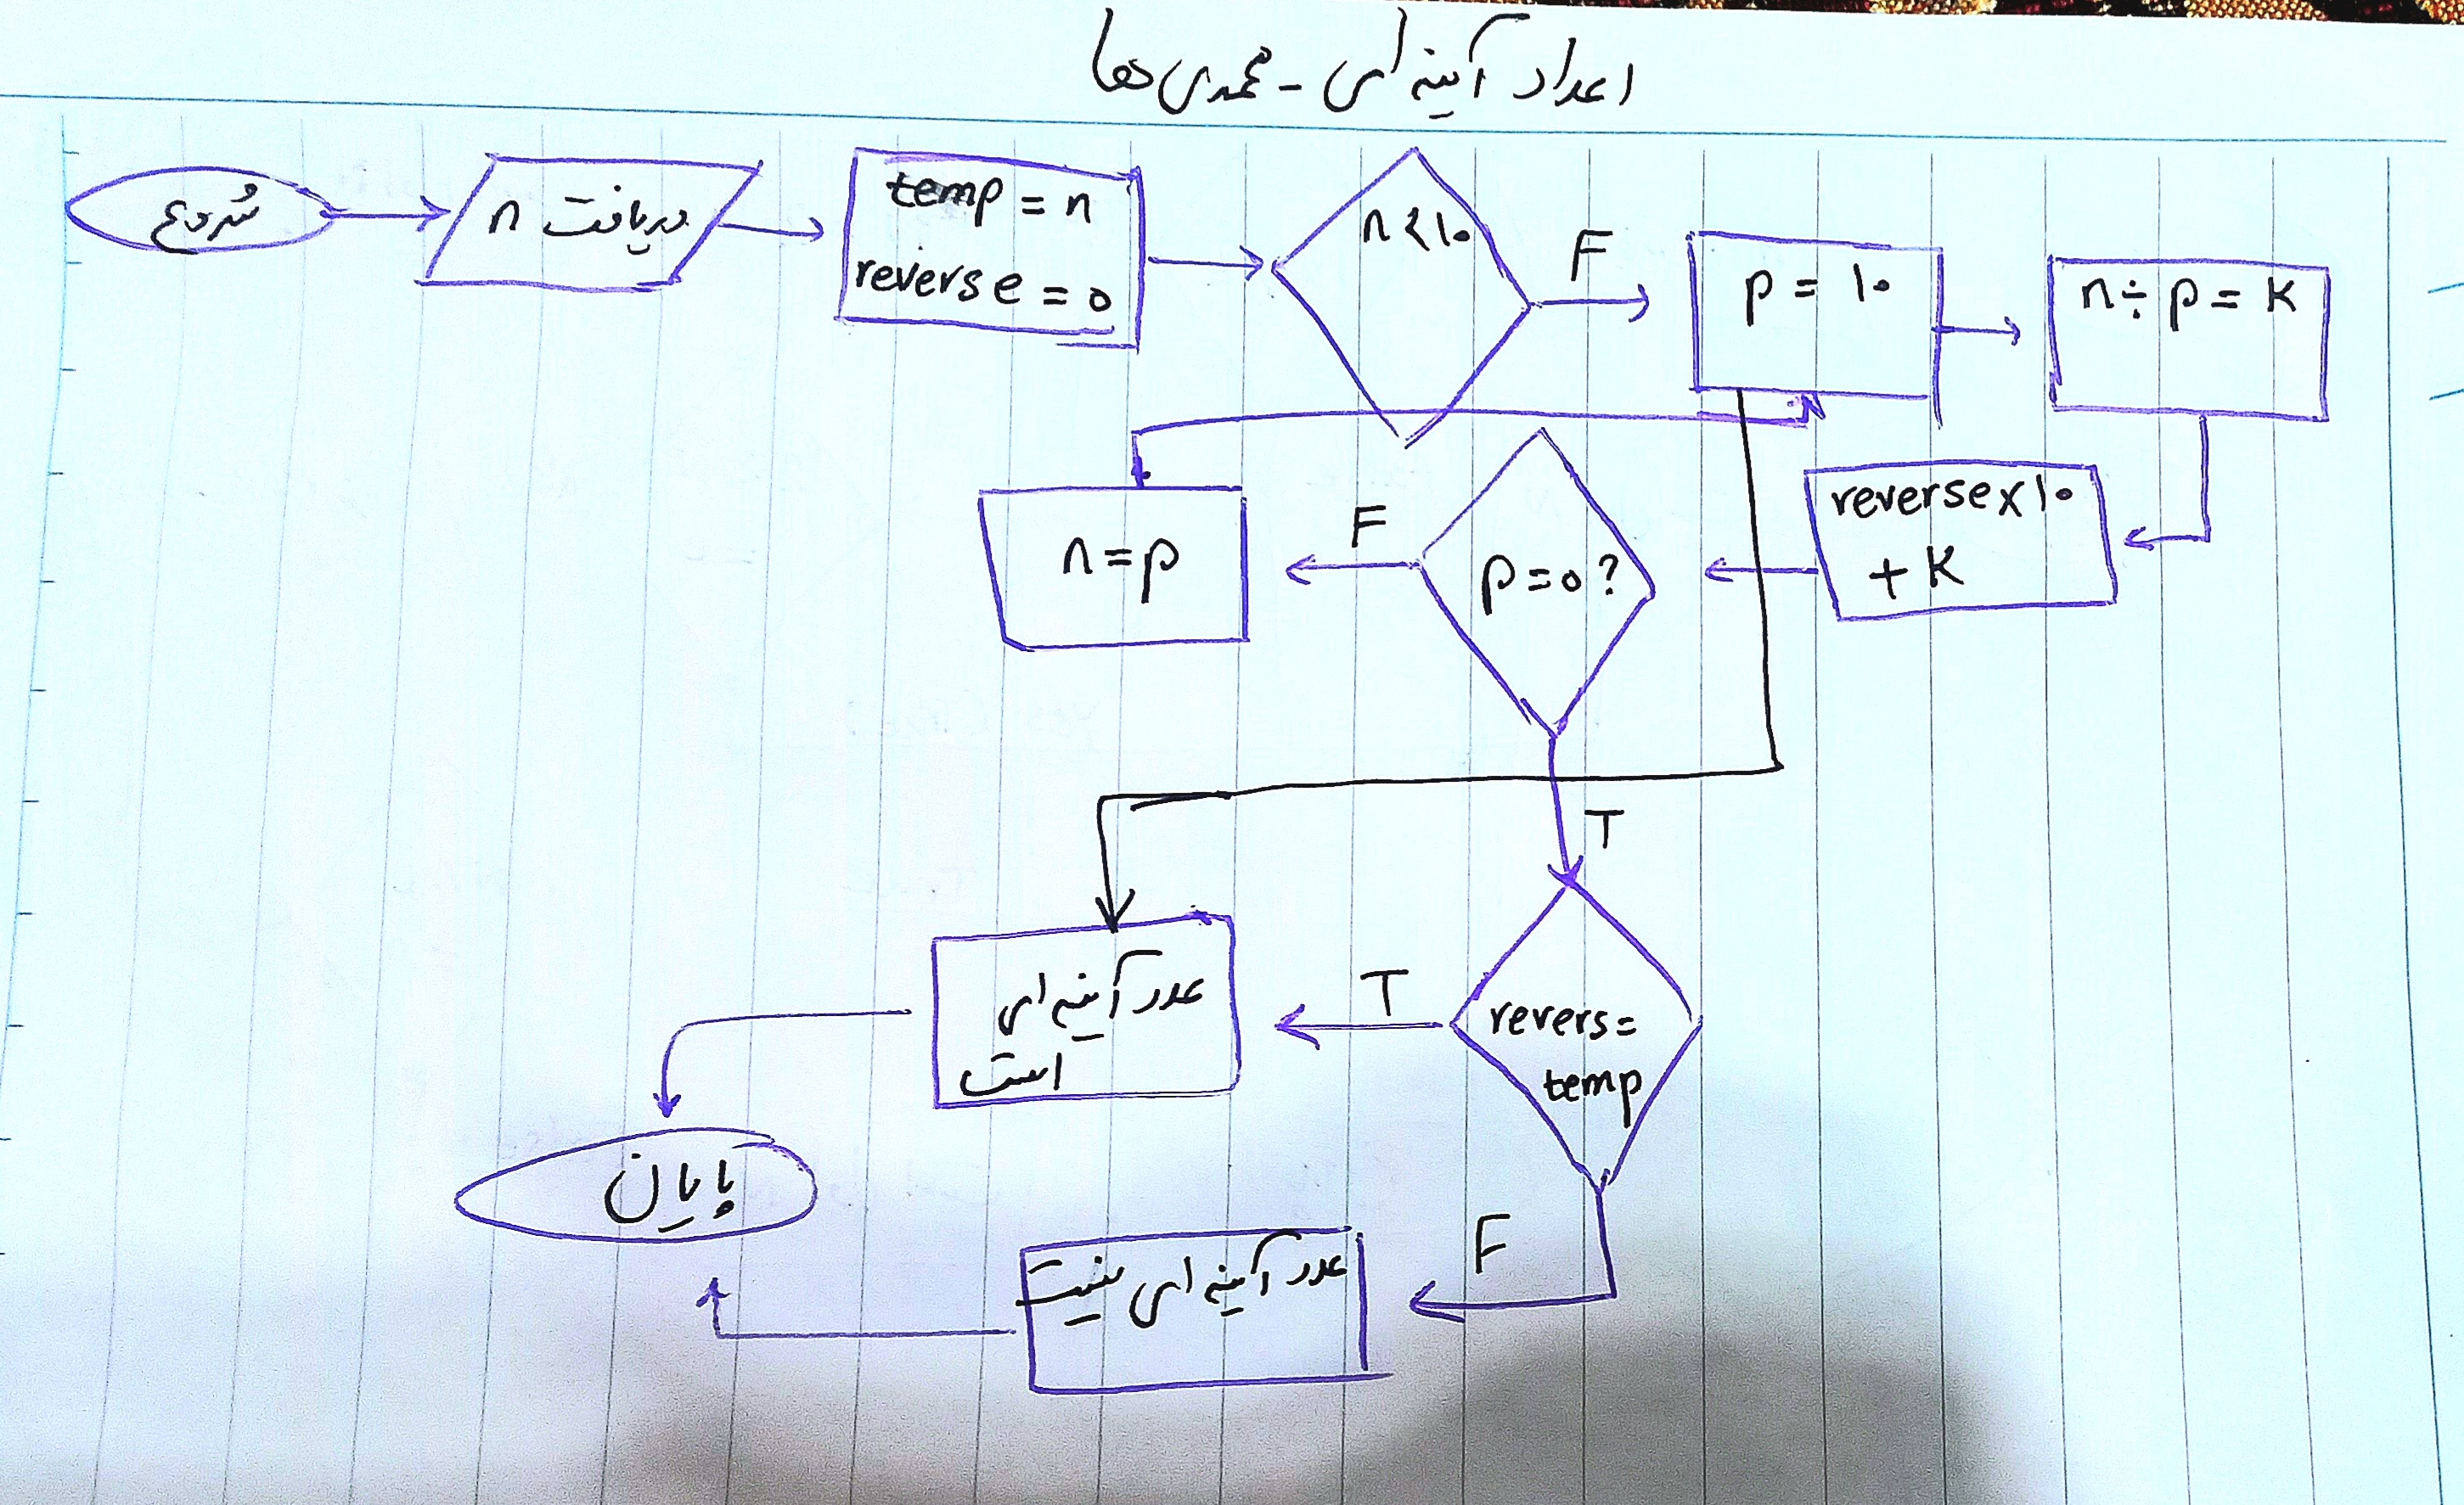 اعداد آینه ای - محمدی دها
شروع
دریافت n
temp = n
reverse = 0
n < ۱۰
F
p = ۱۰
n ÷ p = K
reverse x ۱۰
+ K
p = 0 ?
F
n = p
T
revers =
temp
T
عدد آینه ای
است
F
عدد آینه ای نیست
پایان